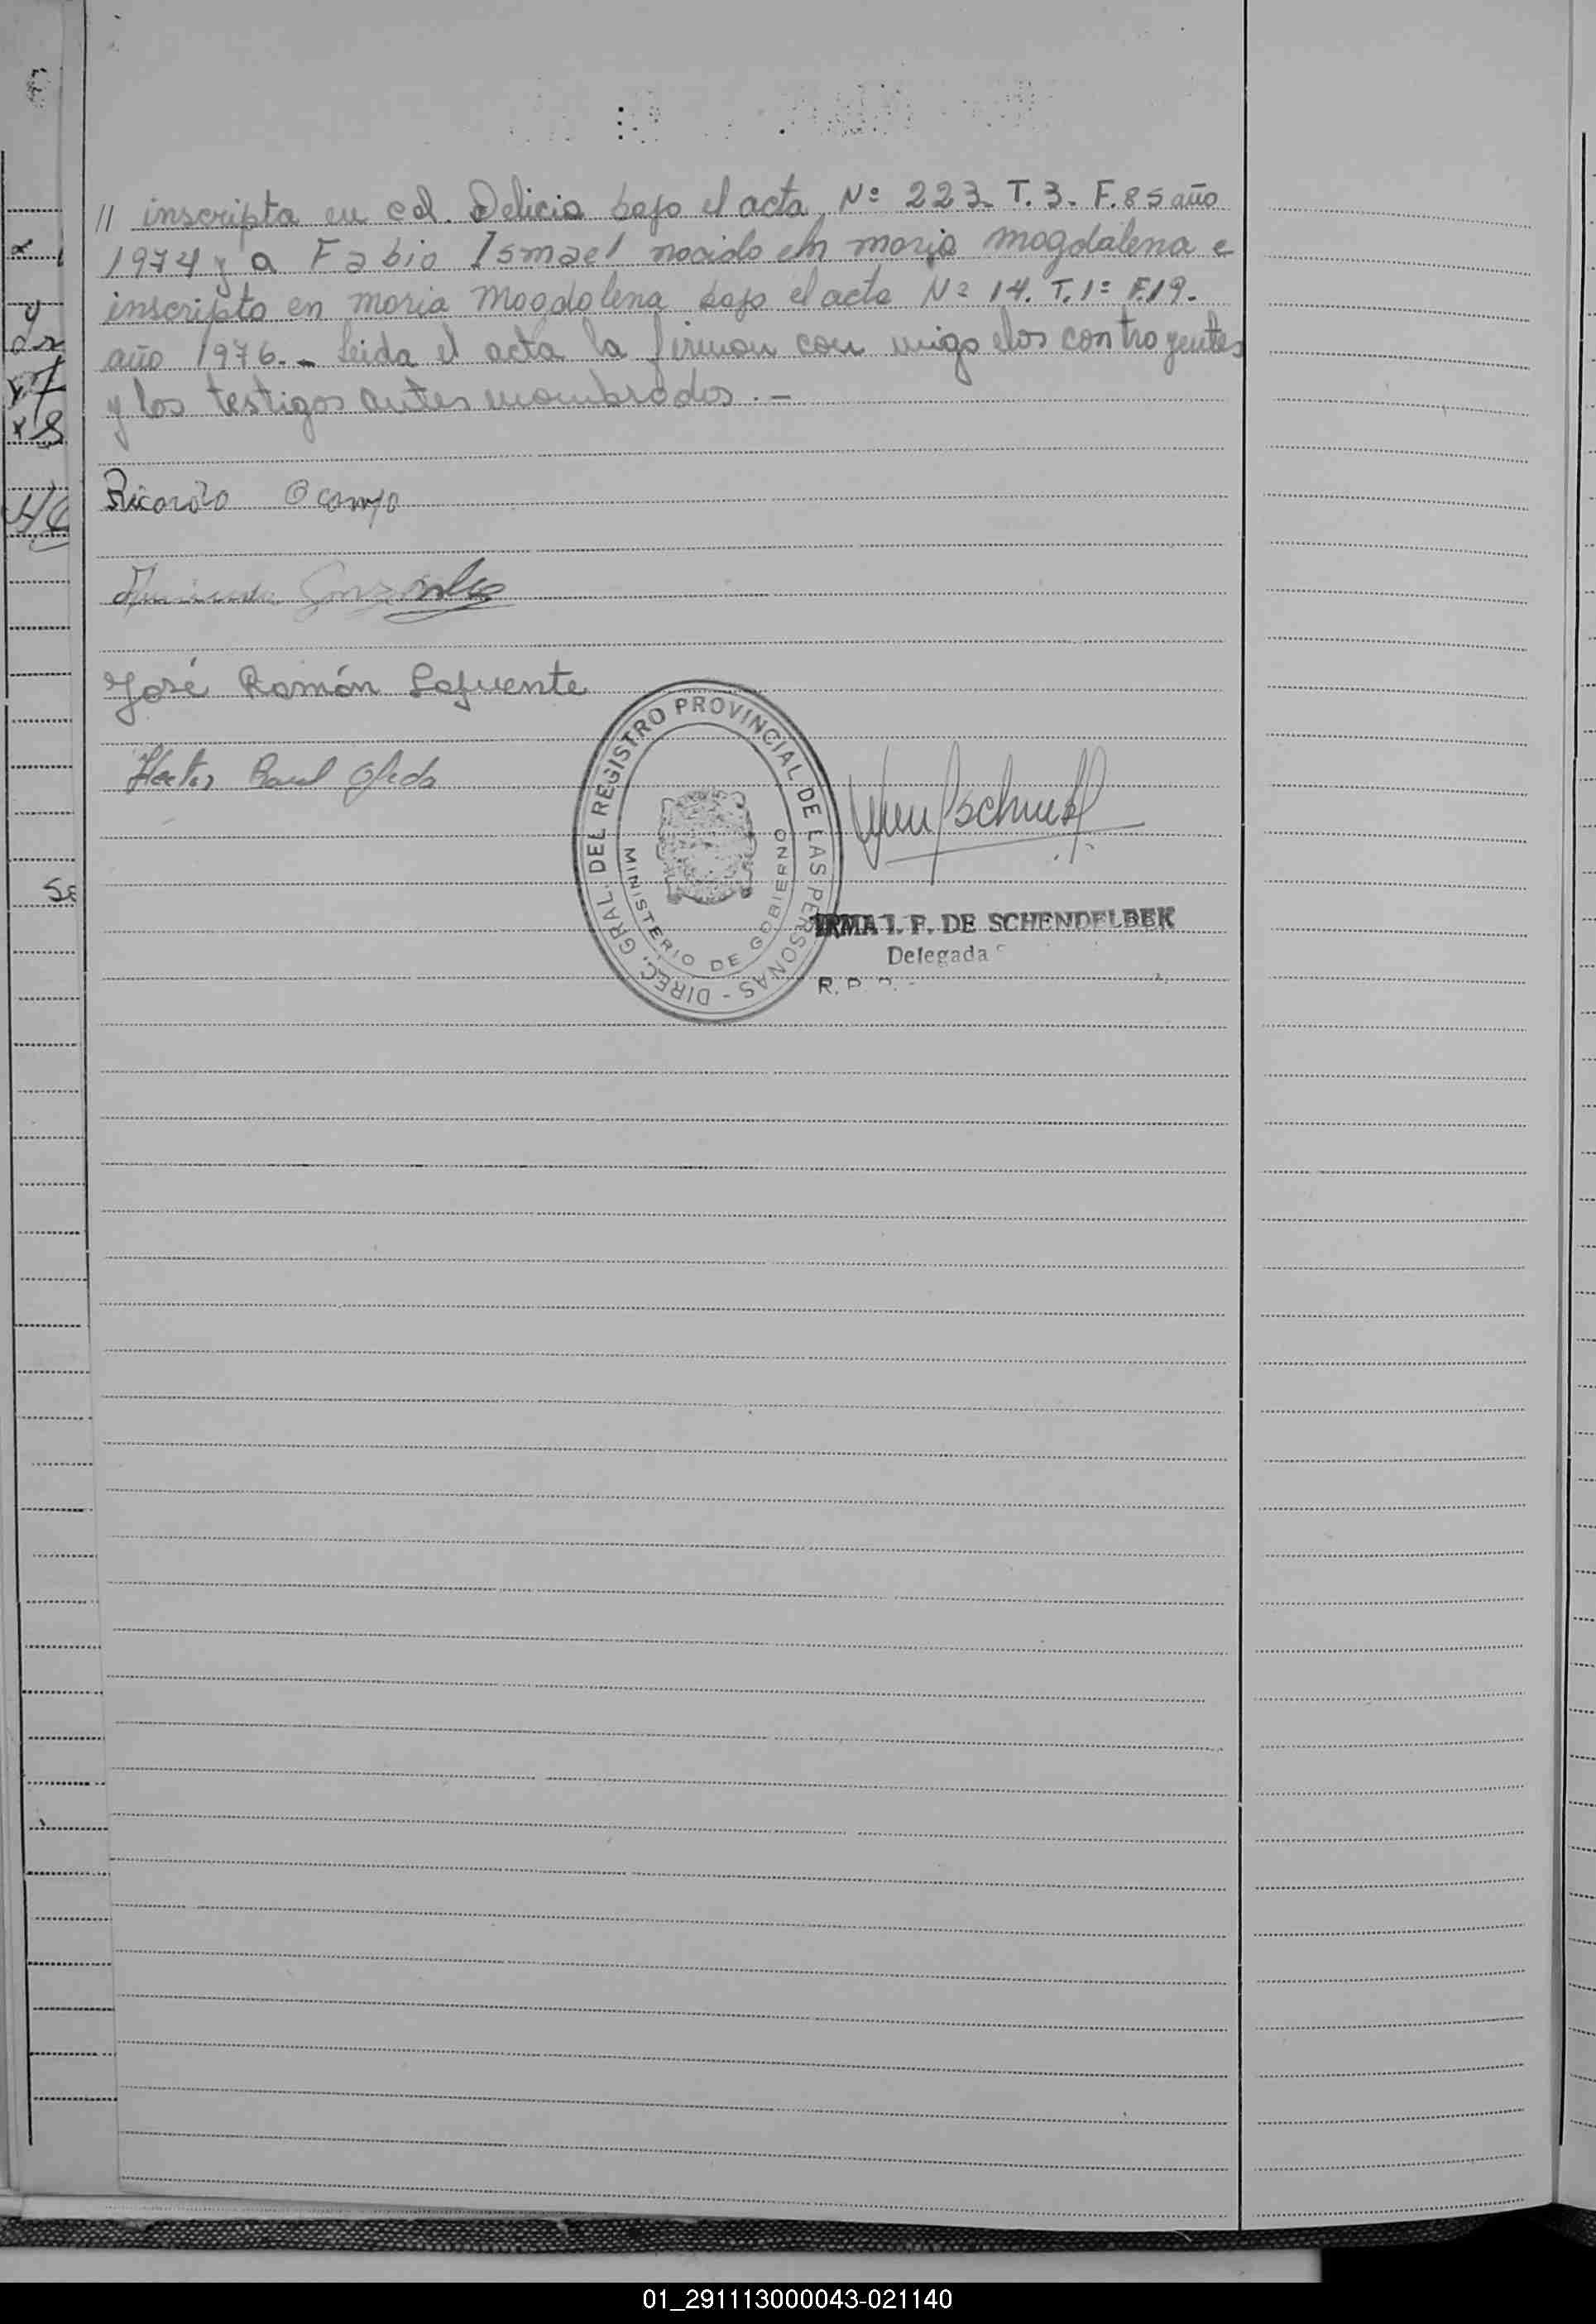 // inscripta en col. Delicia bajo el acta Nº 223. T. 3. F. 85 año
1974 y a Fabio Ismael nacido en maria magdalena e
inscripto en maria magdalena bajo el acta Nº 14. T. 1º F. 19.
año 1976.- Leida el acta la firman con migo los contrayentes
y los testigos antes nombrados.-
Ricardo Ocampo
Gonzalez
José Román Lafuente
Hector Raul Ojeda
DIREC. GRAL. DEL REGISTRO PROVINCIAL DE LAS PERSONAS -
MINISTERIO DE GOBIERNO
IRMA I. F. DE SCHENDELBEK
Delegada
R. P.
01_291113000043-021140